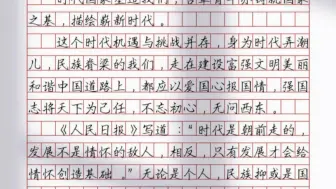 之基，描绘崭新时代。
这个时代机遇与挑战并存，身为时代弄潮
儿，民族脊梁的我们，走在建设富强文明美丽
和谐中国道路上，都应以爱国心报国情，强国
志将天下为己任，不忘初心，无问西东。
《人民日报》写道：“时代是朝前走的，
发展不是情怀的敌人，相反，只有发展才会给
情怀创造基础。”无论是个人，民族抑或是国